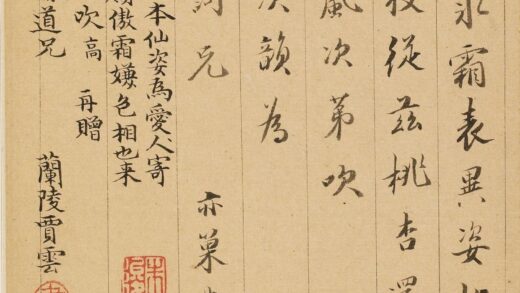 霜表異姿
從茲桃杏
風次第吹
次韻為
詞兄 亦巢
本仙姿為愛人寄
傲霜嫌色相也来
吹高 再贈
道兄 蘭陵賈雲